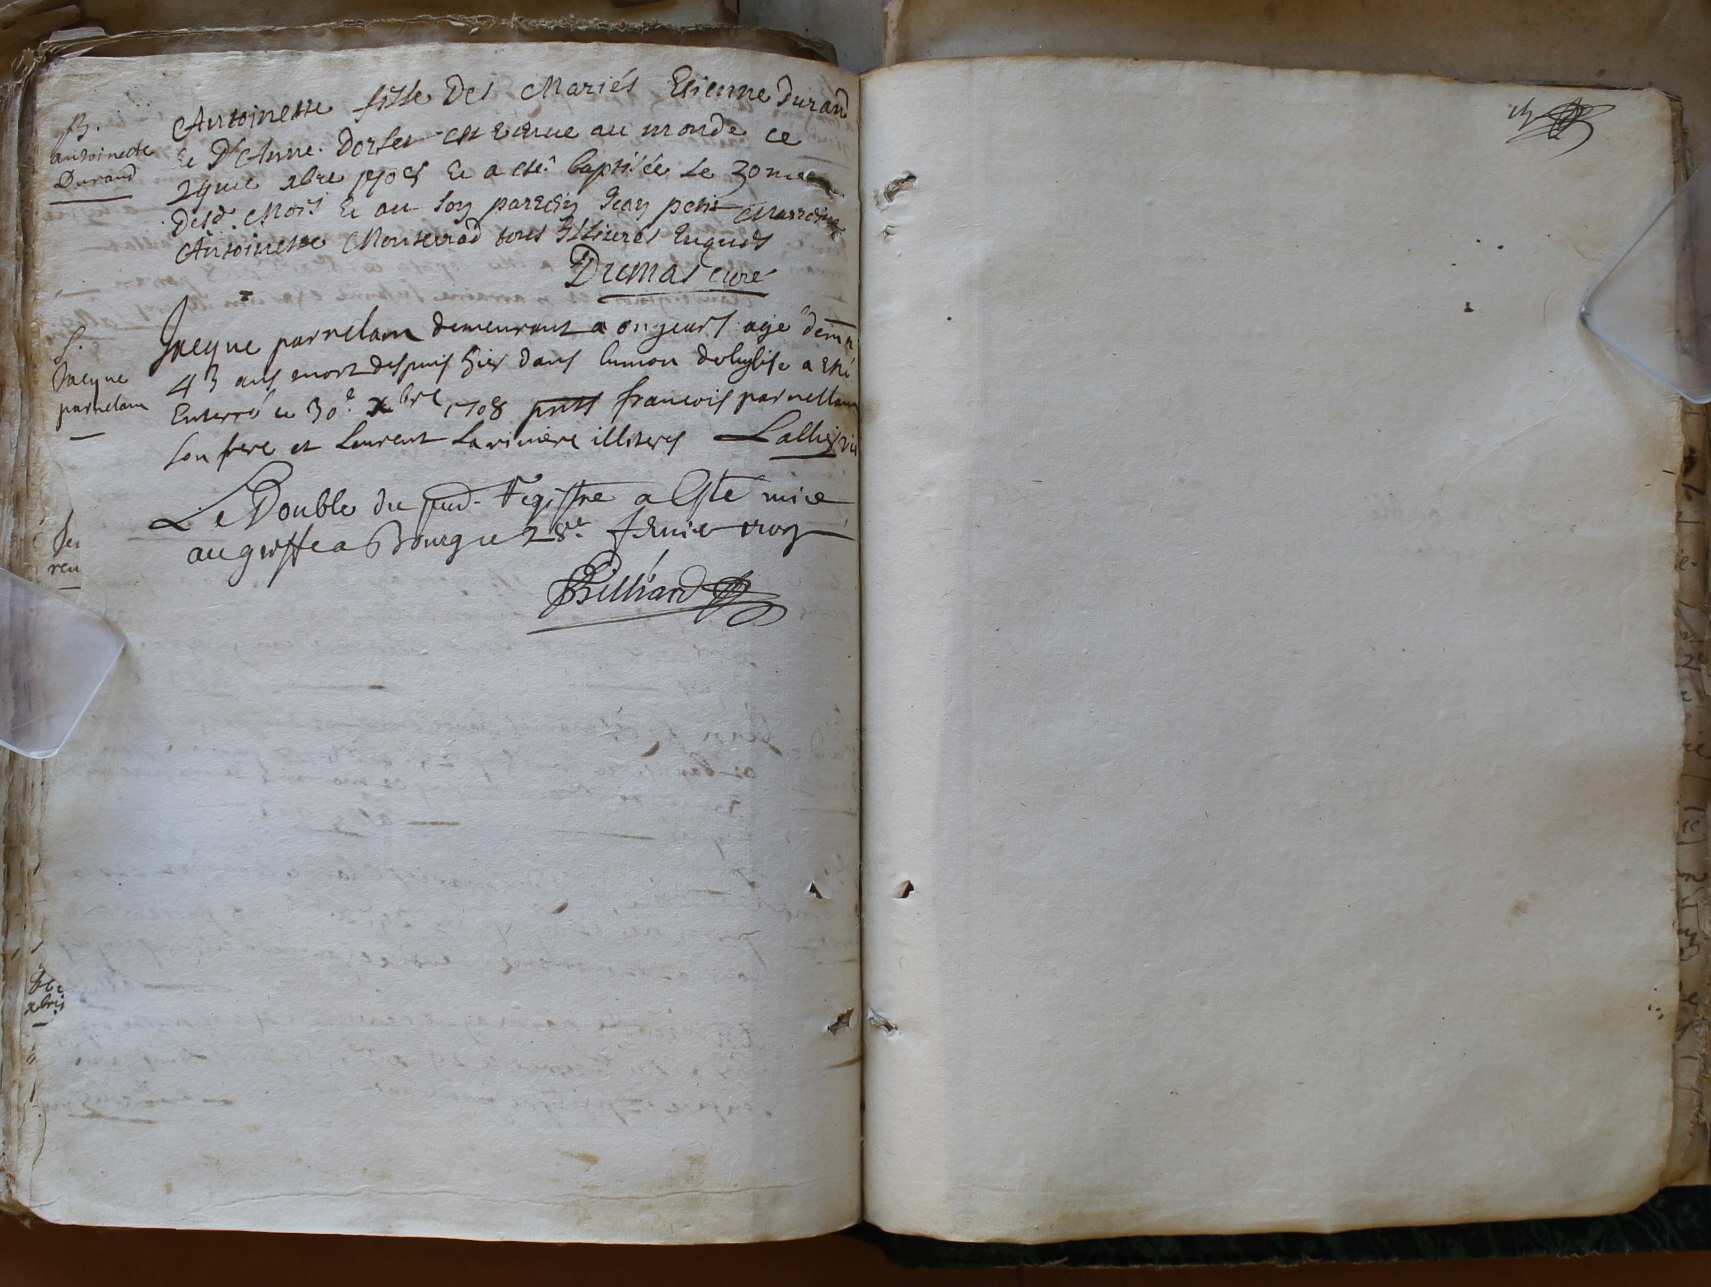 B.
antoinette
Durand
Antoinette fille des Mariés Etienne durand
Et De Anne. Dorlet est venue au monde ce
29me xbre 1708 Et a esté baptisée le 30me
dud. Mois Et au Son parrein Jean petit Marreine
Antoinette Monterrad tous Illiterés Enquis
Dumas curé
S.
Jacque
parnelam
Jacque parnelam demeurant a ongeart agé denn
43 ans mort despuis hier dans lunion de leglise a Eté
Enterré ce 30e xbre 1708 pntt francois parnellam
son frere et Laurent Lariviere illiteres Lalli vic
Le Double du pnd. Registre a Esté mice
au greffe a Bourg ce 28e fevrier 1709
Billiard